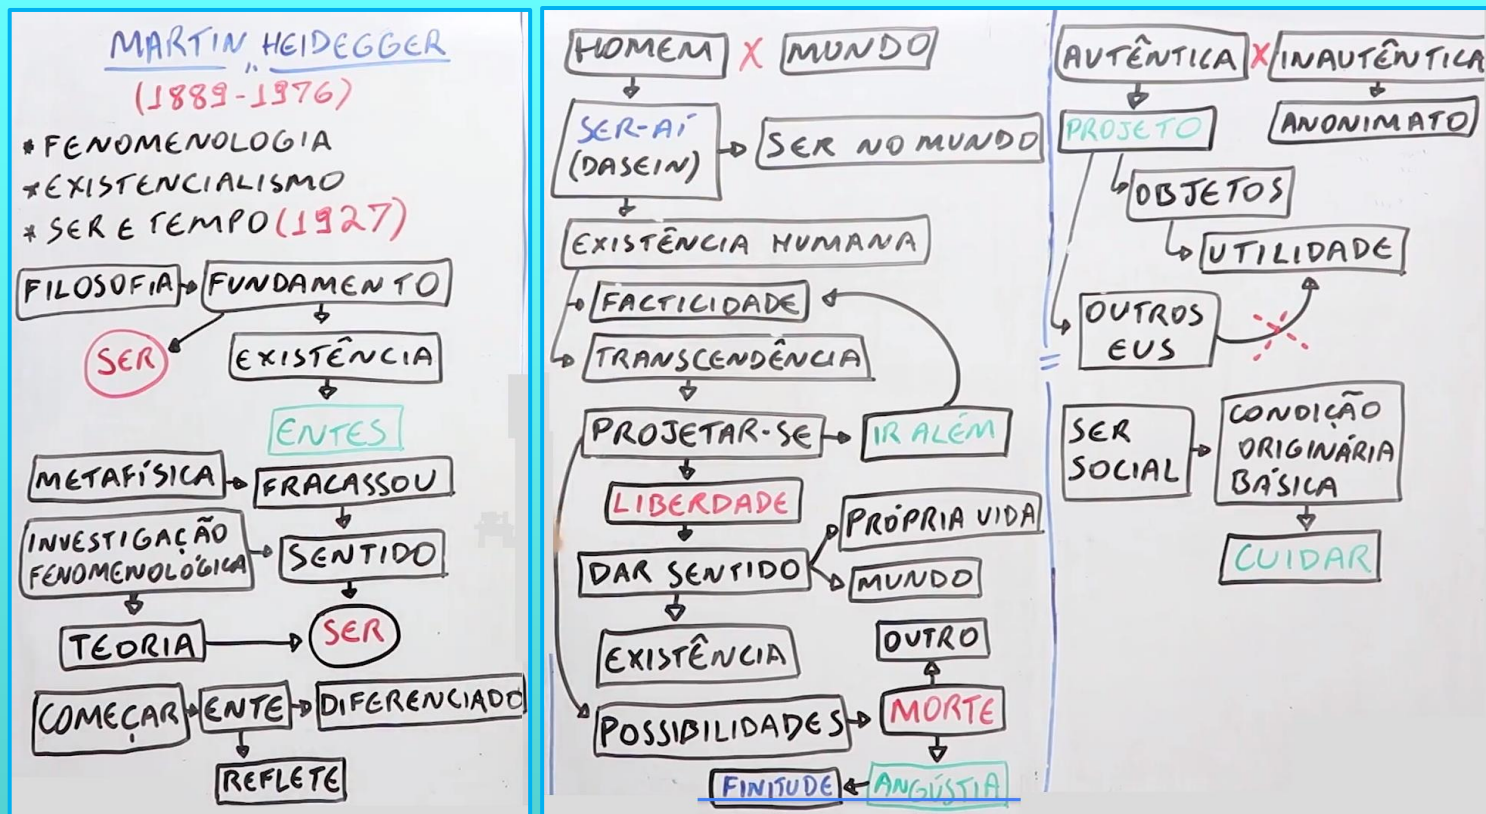 MARTIN HEIDEGGER
(1889-1976)
* FENOMENOLOGIA
* EXISTENCIALISMO
* SER E TEMPO (1927)
FILOSOFIA
FUNDAMENTO
SER
EXISTÊNCIA
ENTES
METAFÍSICA
FRACASSOU
INVESTIGAÇÃO
FENOMENOLÓGICA
SENTIDO
TEORIA
SER
COMEÇAR
ENTE
DIFERENCIADO
REFLETE
HOMEM X MUNDO
SER-AÍ
(DASEIN)
SER NO MUNDO
EXISTÊNCIA HUMANA
FACTICIDADE
TRANSCENDÊNCIA
PROJETAR-SE
IR ALÉM
LIBERDADE
PRÓPRIA VIDA
DAR SENTIDO
MUNDO
EXISTÊNCIA
OUTRO
POSSIBILIDADES
MORTE
FINITUDE
ANGÚSTIA
AUTÊNTICA X INAUTÊNTICA
PROJETO
ANONIMATO
OBJETOS
UTILIDADE
OUTROS
EUS
SER
SOCIAL
CONDIÇÃO
ORIGINÁRIA
BÁSICA
CUIDAR